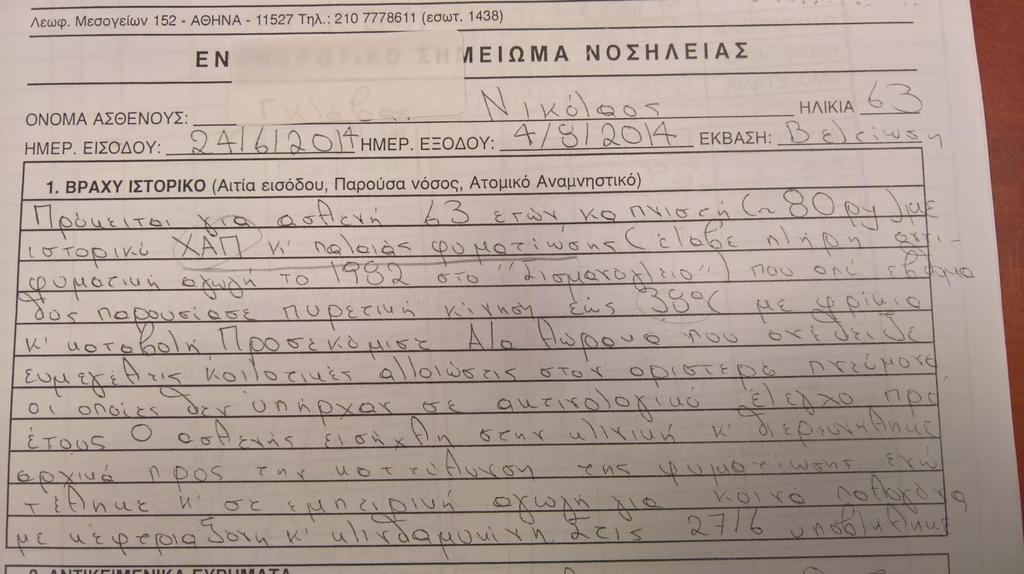 Λεωφ. Μεσογείων 152 - ΑΘΗΝΑ - 11527 Τηλ.: 210 7778611 (εσωτ. 1438)
ΕΝ ΜΕΙΩΜΑ ΝΟΣΗΛΕΙΑΣ
ΟΝΟΜΑ ΑΣΘΕΝΟΥΣ: Νικόλαος ΗΛΙΚΙΑ 63
ΗΜΕΡ. ΕΙΣΟΔΟΥ: 24/6/2014 ΗΜΕΡ. ΕΞΟΔΟΥ: 4/8/2014 ΕΚΒΑΣΗ: Βελτίωση
1. ΒΡΑΧΥ ΙΣΤΟΡΙΚΟ (Αιτία εισόδου, Παρούσα νόσος, Ατομικό Αναμνηστικό)
Πρόκειται για ασθενή 63 ετών καπνιστή (~ 80 py) με
ιστορικό ΧΑΠ κ' παλαιάς φυματίωσης (έλαβε πλήρη αντι-
φυματική αγωγή το 1982 στο "Σισμανόγλειο") που από εβδομα
δος παρουσίασε πυρετική κίνηση έως 38°C με φρίκια
κ' καταβολή. Προσεκόμισε Α/α θώρακα που ανέδειξε
ευμεγέθεις κοιλοτικές αλλοιώσεις στον αριστερό πνεύμονα
οι οποίες δεν υπήρχαν σε ακτινολογικό έλεγχο προ
έτους Ο ασθενής εισήχθη στην κλινική κ' διερευνήθηκε
αρχικά προς την κατεύθυνση της φυματίωσης ενώ
τέθηκε κ' σε εμπειρική αγωγή για κοινά παθογόνα
με κεφτριαξόνη κ' κλινδαμυκίνη. Στις 27/6 υποβλήθηκε
2. ΑΝΤΙΚΕΙΜΕΝΙΚΑ ΕΥΡΗΜΑΤΑ